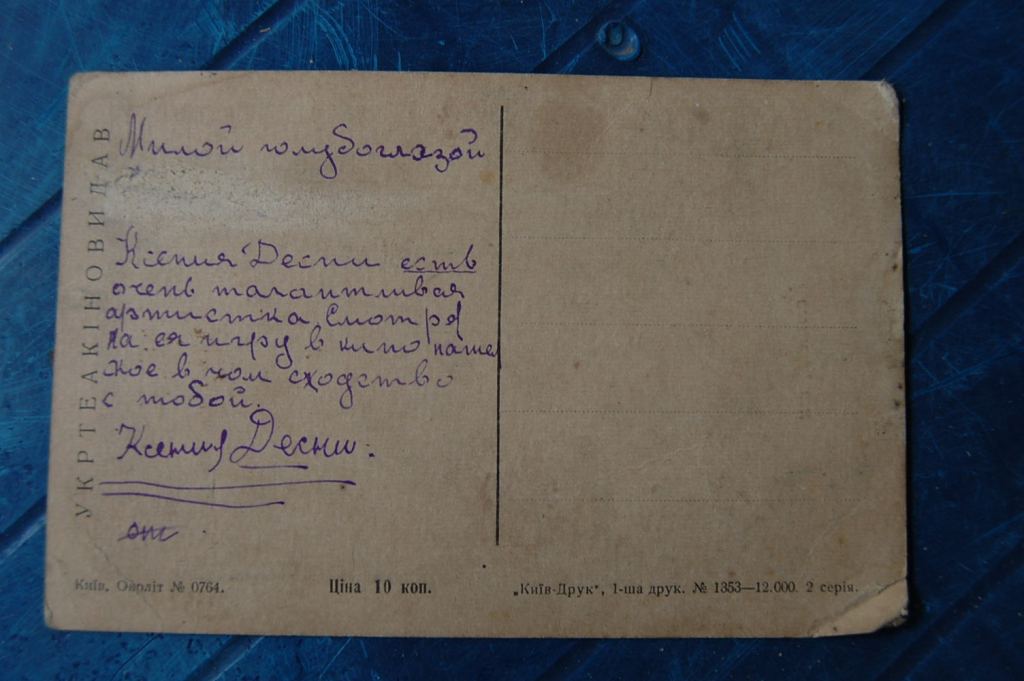 УКРТЕАКІНОВИДАВ
Милой голубоглазой
Ксения Десни есть
очень талантливая
артистка. Смотря
на ея игру в кино наше
кое в чом сходство
с тобой.
Ксения Десни.
от
Київ. Окрліт № 0764.
Ціна 10 коп.
„Київ-Друк“, 1-ша друк. № 1353—12.000. 2 серія.